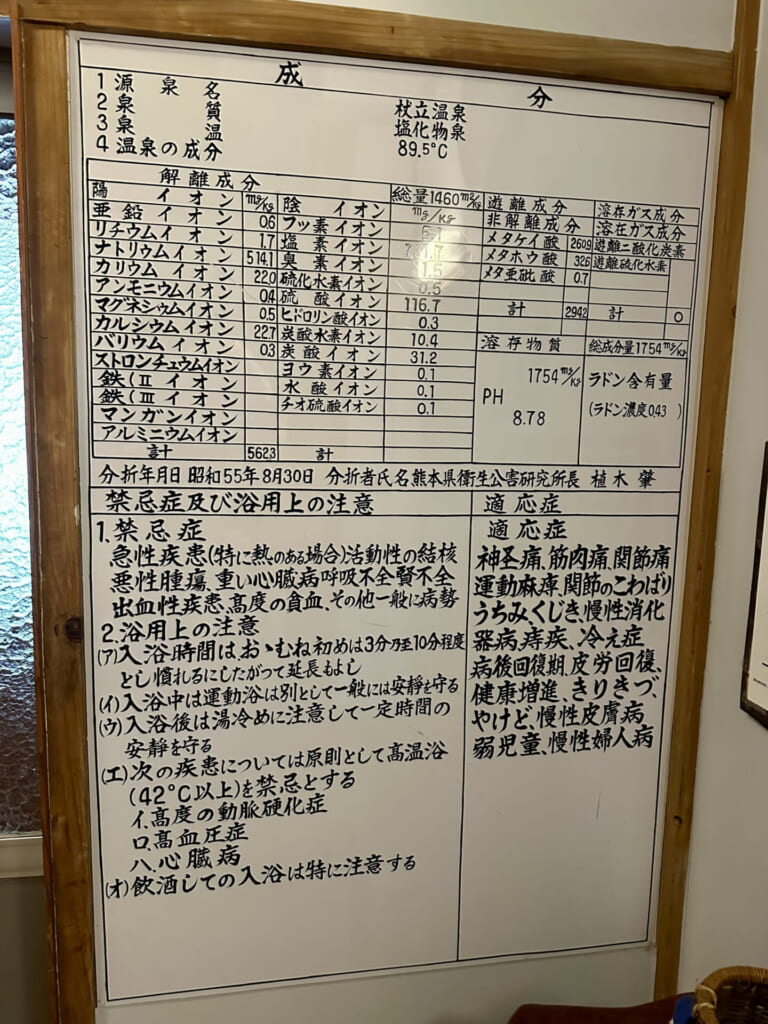 成分
1 源泉名 杖立温泉
2 泉質 塩化物泉
3 泉温 89.5°C
4 温泉の成分
解離成分
陽イオン mg/kg 陰イオン 総量1460mg/kg 遊離成分 溶存ガス成分
亜鉛イオン 0.6 フッ素イオン mg/kg 非解離成分 溶在ガス成分
リチウムイオン 1.7 塩素イオン メタケイ酸 260.9 遊離二酸化炭素
ナトリウムイオン 514.1 臭素イオン 1.5 メタホウ酸 32.6 遊離硫化水素
カリウムイオン 22.0 硫化水素イオン 0.5 メタ亜砒酸 0.7
アンモニウムイオン 0.4 硫酸イオン 116.7 計 294.2 計 0
マグネシゥムイオン 0.5 ヒドロリン酸イオン 0.3
カルシウムイオン 22.7 炭酸水素イオン 10.4 溶存物質 総成分量1754mg/kg
バリウムイオン 0.3 炭酸イオン 31.2
ストロンチェウムイオン ヨウ素イオン 0.1 1754mg/kg ラドン含有量
鉄(Ⅱイオン 水酸イオン 0.1 PH (ラドン濃度0.43)
鉄(Ⅲイオン チオ硫酸イオン 0.1 8.78
マンガンイオン
アルミニウムイオン
計 562.3 計
分折年月日 昭和55年8月30日 分折者氏名熊本県衛生公害研究所長 植木 肇
禁忌症及び浴用上の注意
1.禁忌症
急性疾患(特に熱のある場合)活動性の結核
悪性腫瘍、重い心臓病呼吸不全腎不全
出血性疾患、高度の貧血、その他一般に病勢
2.浴用上の注意
(ア)入浴時間は、おゝむね初めは3分乃至10分程度
とし慣れるにしたがって延長もよし
(イ)入浴中は運動浴は別として一般には安静を守る
(ウ)入浴後は湯冷めに注意して一定時間の
安静を守る
(エ)次の疾患については原則として高温浴
(42°C以上)を禁忌とする
イ.高度の動脈硬化症
ロ.高血圧症
ハ.心臓病
(オ)飲酒しての入浴は特に注意する
適応症
適応症
神圣痛、筋肉痛、関節痛
運動麻痺、関節のこわばり
うちみ、くじき、慢性消化
器病、痔疾、冷え症
病後回復期、疲労回復、
健康増進、きりきづ、
やけど、慢性皮膚病
弱児童、慢性婦人病